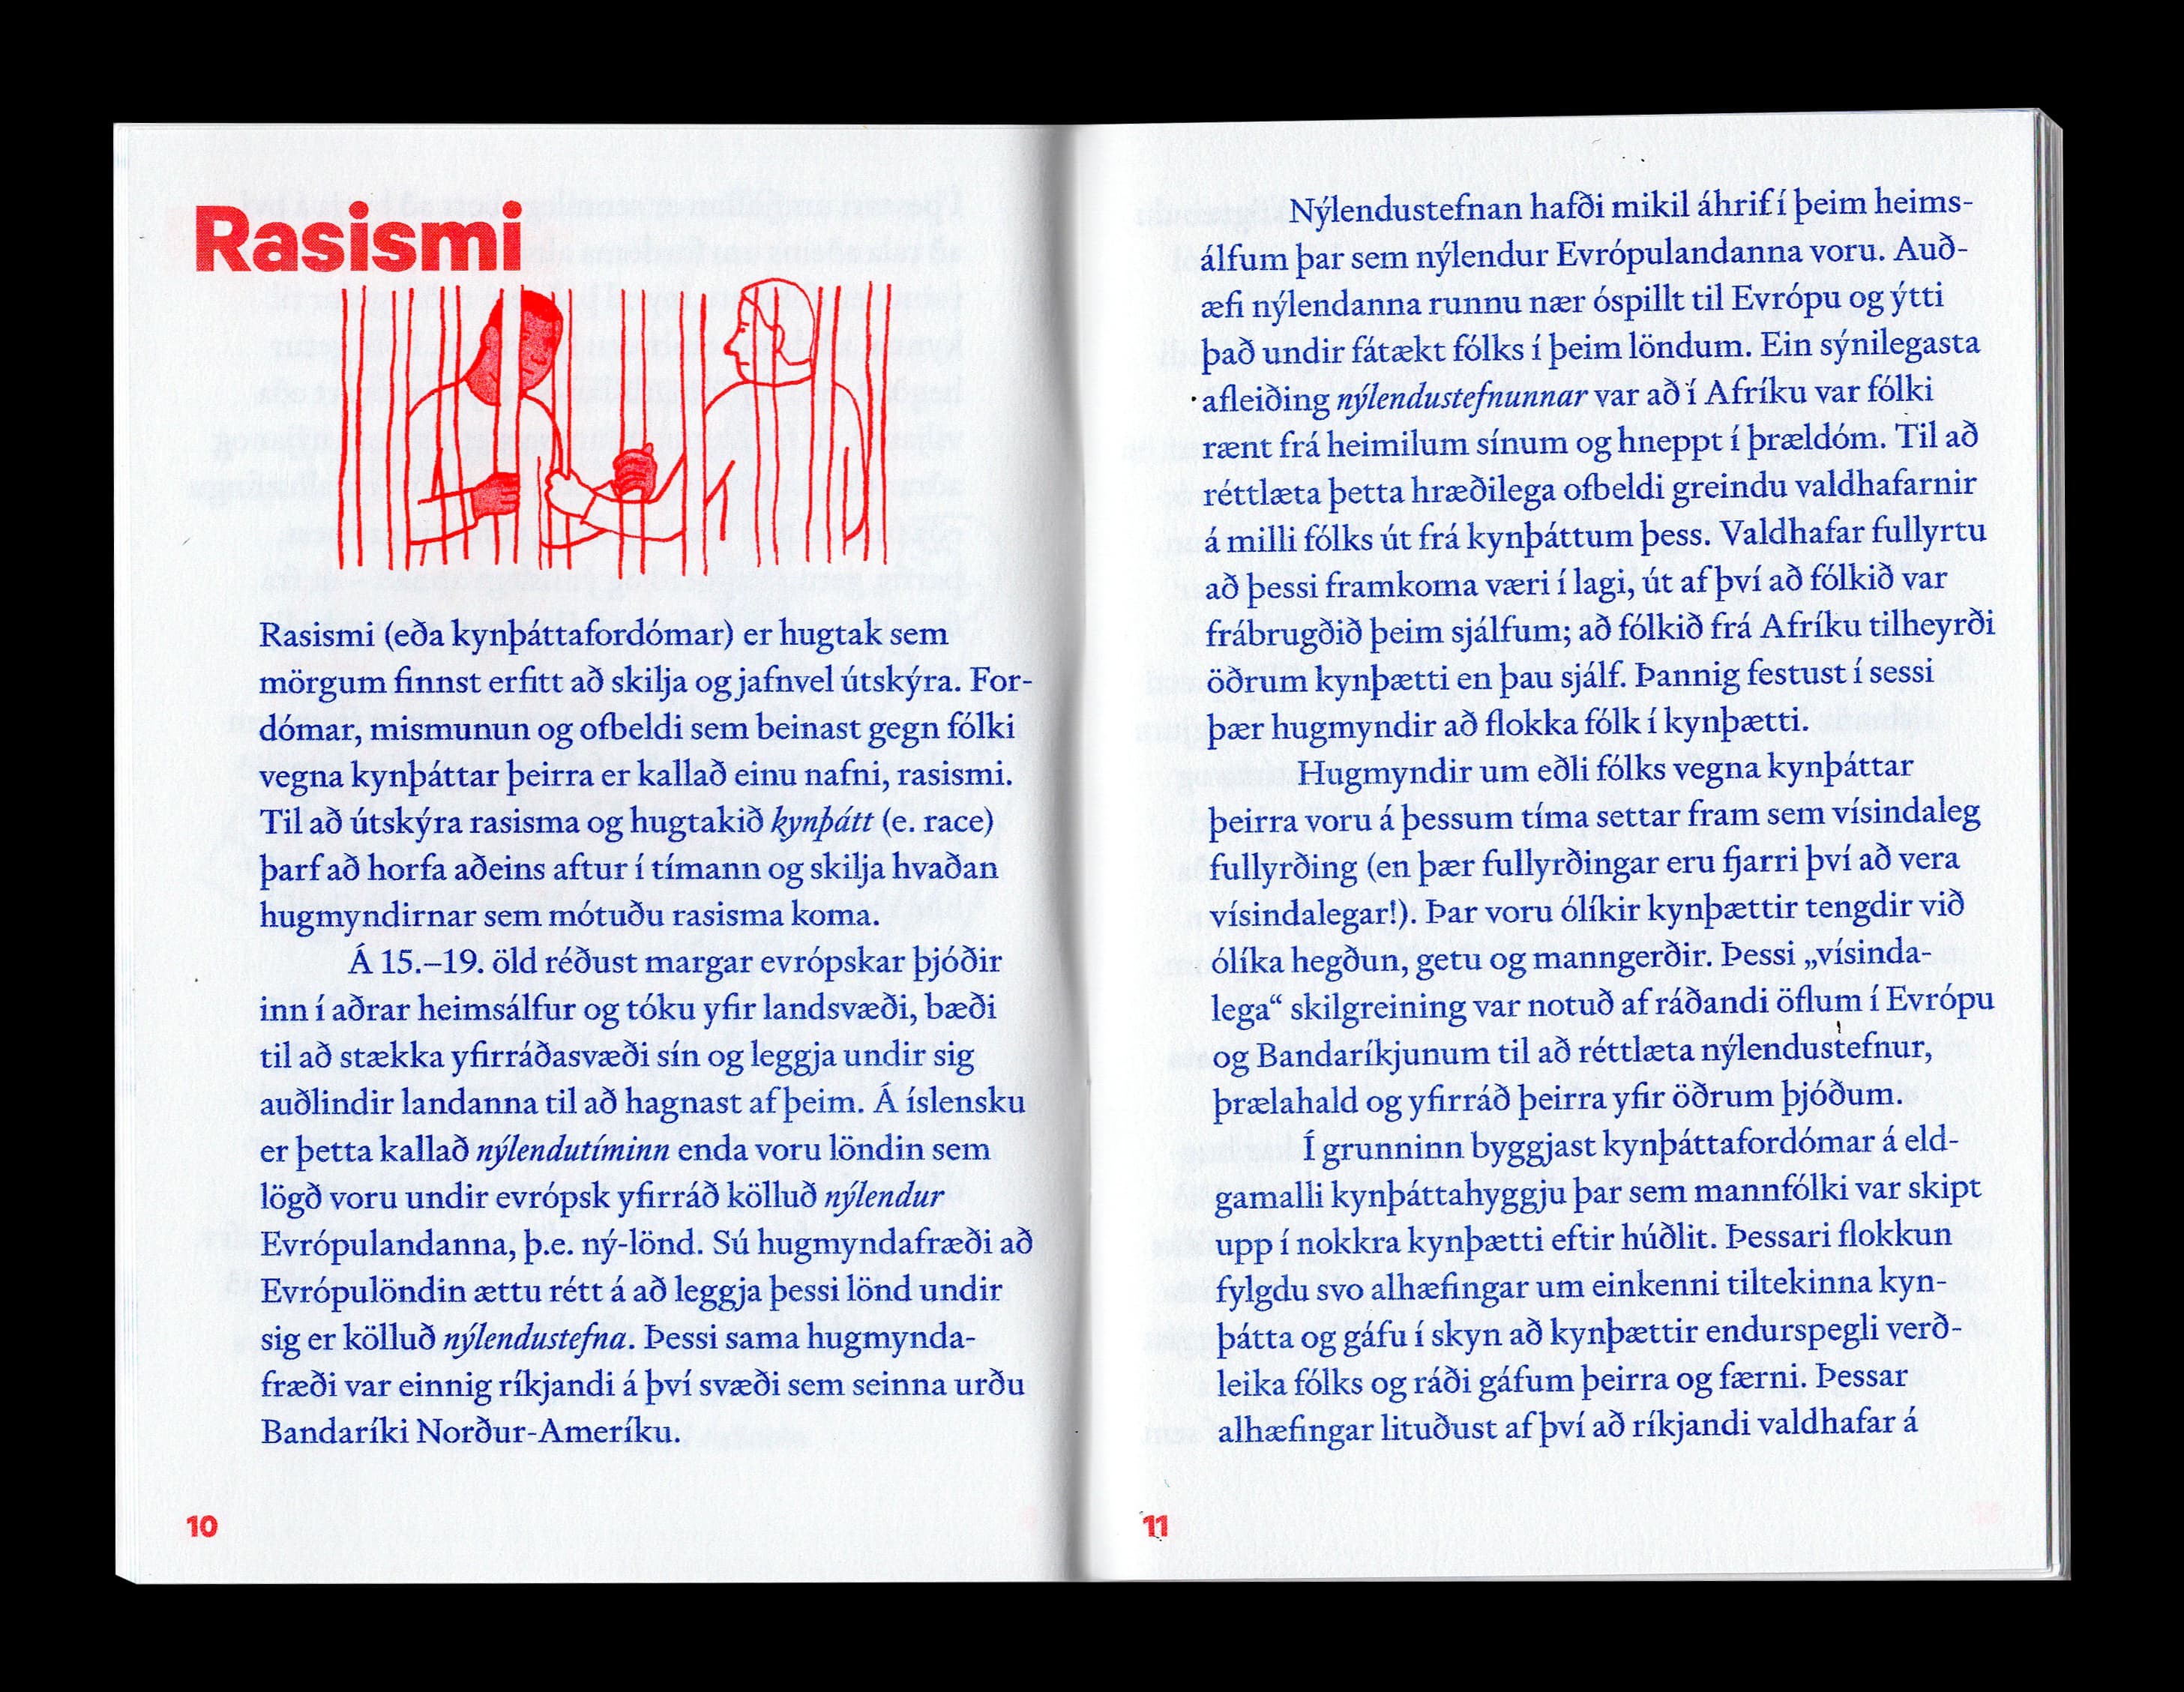 Rasismi
Rasismi (eða kynþáttafordómar) er hugtak sem
mörgum finnst erfitt að skilja og jafnvel útskýra. For-
dómar, mismunun og ofbeldi sem beinast gegn fólki
vegna kynþáttar þeirra er kallað einu nafni, rasismi.
Til að útskýra rasisma og hugtakið kynþátt (e. race)
þarf að horfa aðeins aftur í tímann og skilja hvaðan
hugmyndirnar sem mótuðu rasisma koma.
Á 15.–19. öld réðust margar evrópskar þjóðir
inn í aðrar heimsálfur og tóku yfir landsvæði, bæði
til að stækka yfirráðasvæði sín og leggja undir sig
auðlindir landanna til að hagnast af þeim. Á íslensku
er þetta kallað nýlendutíminn enda voru löndin sem
lögð voru undir evrópsk yfirráð kölluð nýlendur
Evrópulandanna, þ.e. ný-lönd. Sú hugmyndafræði að
Evrópulöndin ættu rétt á að leggja þessi lönd undir
sig er kölluð nýlendustefna. Þessi sama hugmynda-
fræði var einnig ríkjandi á því svæði sem seinna urðu
Bandaríki Norður-Ameríku.
10
Nýlendustefnan hafði mikil áhrif í þeim heims-
álfum þar sem nýlendur Evrópulandanna voru. Auð-
æfi nýlendanna runnu nær óspillt til Evrópu og ýtti
það undir fátækt fólks í þeim löndum. Ein sýnilegasta
afleiðing nýlendustefnunnar var að í Afríku var fólki
rænt frá heimilum sínum og hneppt í þrældóm. Til að
réttlæta þetta hræðilega ofbeldi greindu valdhafarnir
á milli fólks út frá kynþáttum þess. Valdhafar fullyrtu
að þessi framkoma væri í lagi, út af því að fólkið var
frábrugðið þeim sjálfum; að fólkið frá Afríku tilheyrði
öðrum kynþætti en þau sjálf. Þannig festust í sessi
þær hugmyndir að flokka fólk í kynþætti.
Hugmyndir um eðli fólks vegna kynþáttar
þeirra voru á þessum tíma settar fram sem vísindaleg
fullyrðing (en þær fullyrðingar eru fjarri því að vera
vísindalegar!). Þar voru ólíkir kynþættir tengdir við
ólíka hegðun, getu og manngerðir. Þessi „vísinda-
lega“ skilgreining var notuð af ráðandi öflum í Evrópu
og Bandaríkjunum til að réttlæta nýlendustefnur,
þrælahald og yfirráð þeirra yfir öðrum þjóðum.
Í grunninn byggjast kynþáttafordómar á eld-
gamalli kynþáttahyggju þar sem mannfólki var skipt
upp í nokkra kynþætti eftir húðlit. Þessari flokkun
fylgdu svo alhæfingar um einkenni tiltekinna kyn-
þátta og gáfu í skyn að kynþættir endurspegli verð-
leika fólks og ráði gáfum þeirra og færni. Þessar
alhæfingar lituðust af því að ríkjandi valdhafar á
11